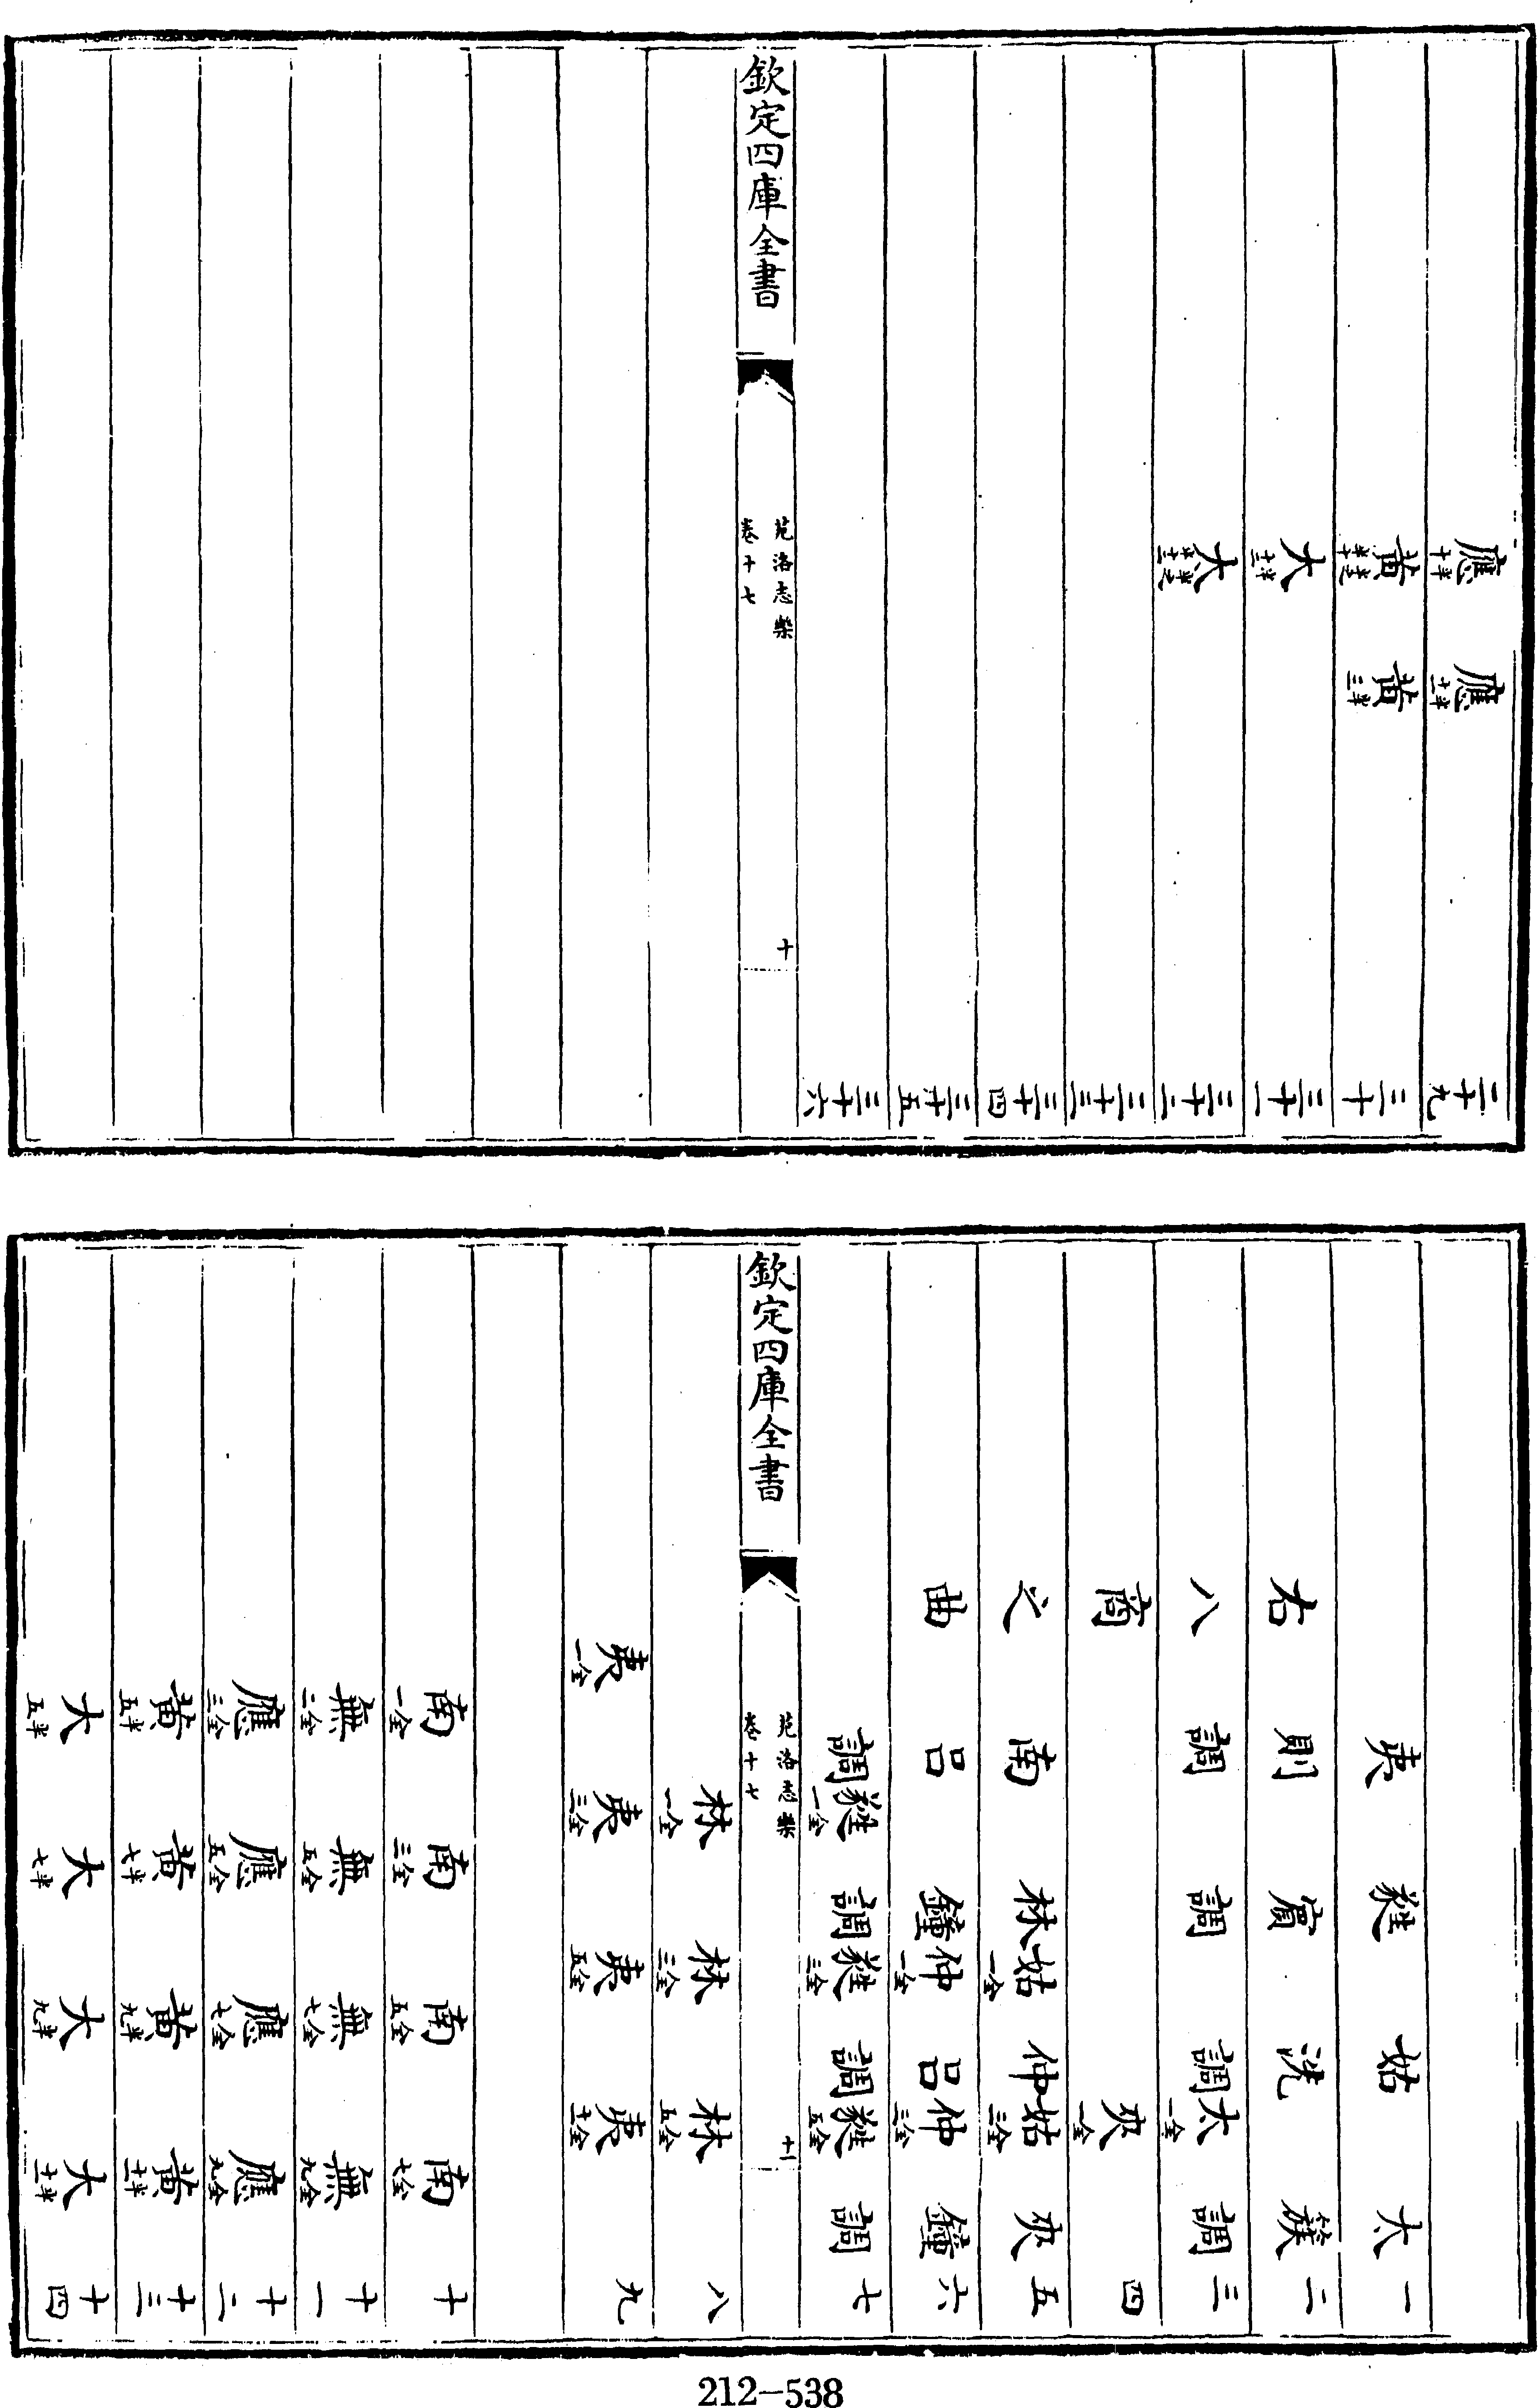 應十半 應 二十九
黃 黃三半 三十
大 三十一
大 三十二
三十三
三十四
三十五
三十六
欽定四庫全書
苑洛志樂
卷十七
十
夷 蕤 姑 太 一
右 則 賓 洗 簇 二
八 調 調 調 太一全 調 三
商 夾一全 四
之 南 林 姑一全 仲 姑三全 夾 五
曲 呂 鐘 仲一全 呂 仲三全 鐘 六
調 蕤一全 調 蕤三全 調 蕤五全 調 七
欽定四庫全書
苑洛志樂
卷十七
十一
林一全 林三全 林五全 八
夷一全 夷三全 夷五全 夷 九
南一全 南三全 南五全 南七全 十
無二全 無五全 無七全 無九全 十一
應三全 應五全 應七全 應九全 十二
黃五半 黃七半 黃九半 黃十一半 十三
大五半 大七半 大九半 大十一半 十四
212-538